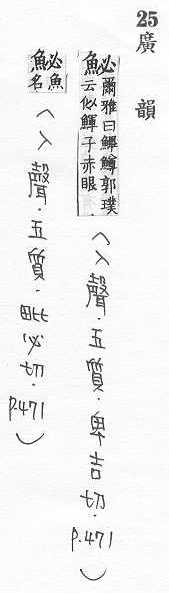 25廣韻
鮅爾雅曰鮅鱒郭璞云似鯶子赤眼(入聲.五質.卑吉切.P.471)
鮅魚名(入聲.五質.毗必切.P.471)